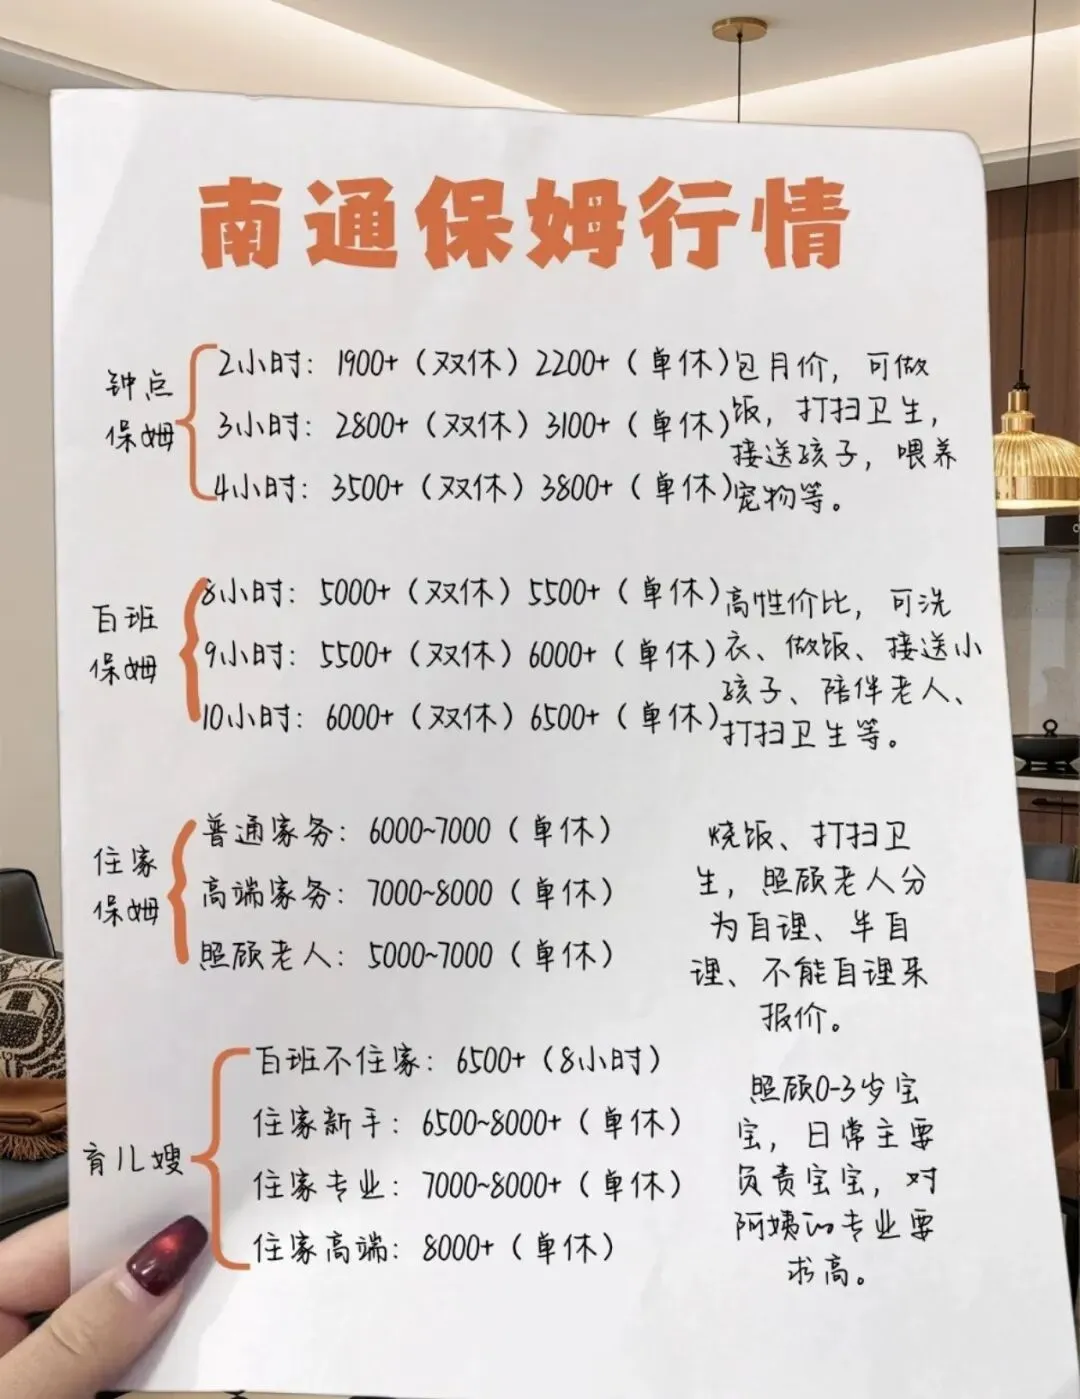 南通保姆行情
钟点
保姆
2小时：1900+（双休）2200+（单休）
3小时：2800+（双休）3100+（单休）
4小时：3500+（双休）3800+（单休）
包月价，可做
饭，打扫卫生，
接送孩子，喂养
宠物等。
百班
保姆
8小时：5000+（双休）5500+（单休）
9小时：5500+（双休）6000+（单休）
10小时：6000+（双休）6500+（单休）
高性价比，可洗
衣、做饭、接送小
孩子、陪伴老人、
打扫卫生等。
住家
保姆
普通家务：6000~7000（单休）
高端家务：7000~8000（单休）
照顾老人：5000~7000（单休）
烧饭、打扫卫
生，照顾老人分
为自理、半自
理、不能自理来
报价。
育儿嫂
百班不住家：6500+（8小时）
住家新手：6500~8000+（单休）
住家专业：7000~8000+（单休）
住家高端：8000+（单休）
照顾0-3岁宝
宝，日常主要
负责宝宝，对
阿姨的专业要
求高。